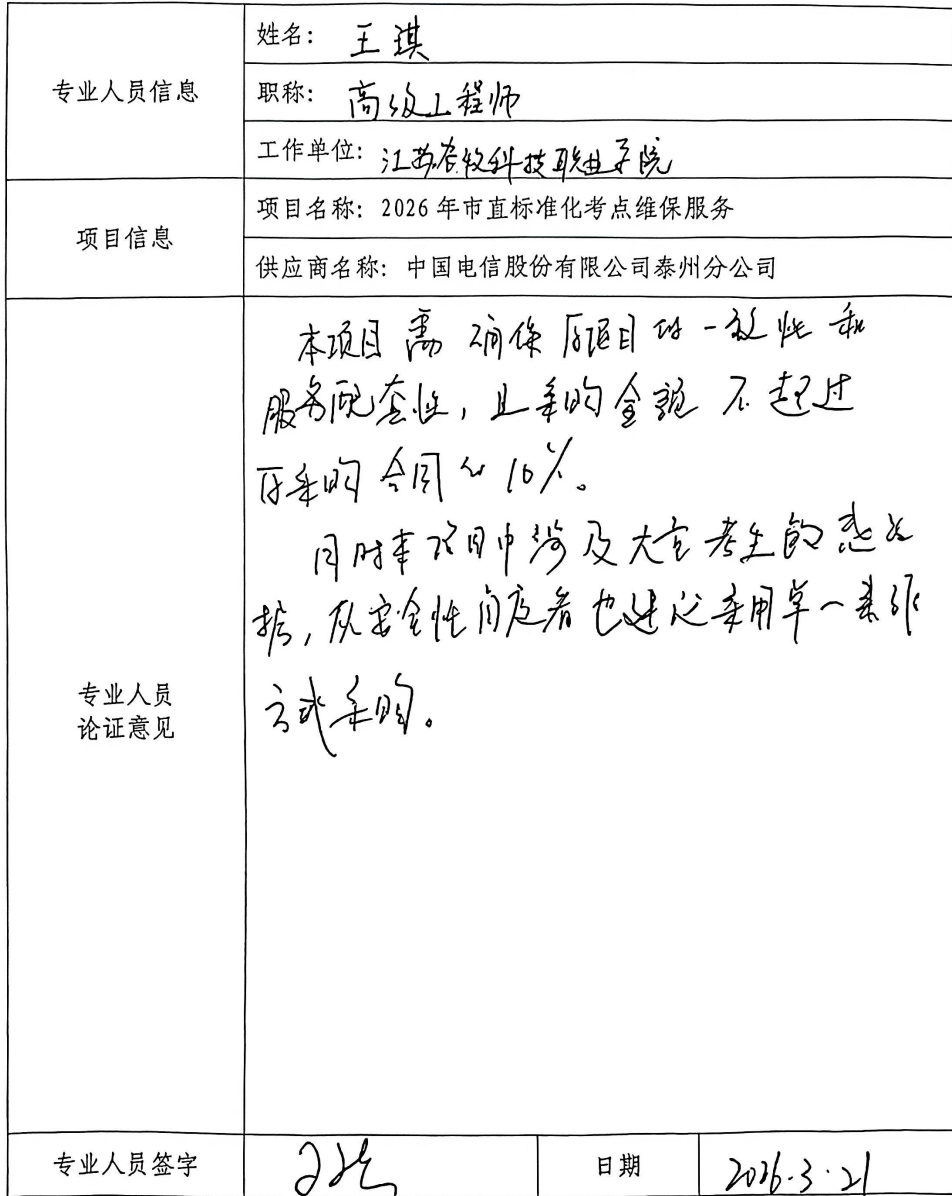 专业人员信息
姓名: 王琪
职称: 高级工程师
工作单位: 江苏农牧科技职业学院
项目信息
项目名称: 2026年市直标准化考点维保服务
供应商名称: 中国电信股份有限公司泰州分公司
专业人员
论证意见
本项目需确保原项目的一致性和
服务配套性,且采购金额不超过
原采购合同的10%。
同时本项目中涉及大量考生的
,从安全性角度看也建议采用单一来源
方式采购。
专业人员签字
日期
2026.3.21